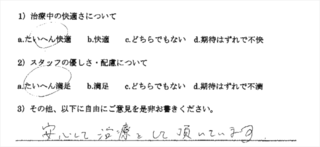 1）治療中の快適さについて
a.たいへん快適　b.快適　c.どちらでもない　d.期待はずれで不快
2）スタッフの優しさ・配慮について
a.たいへん満足　b.満足　c.どちらでもない　d.期待はずれで不満
3）その他、以下に自由にご意見を是非お書きください。
安心して治療をして頂いています。